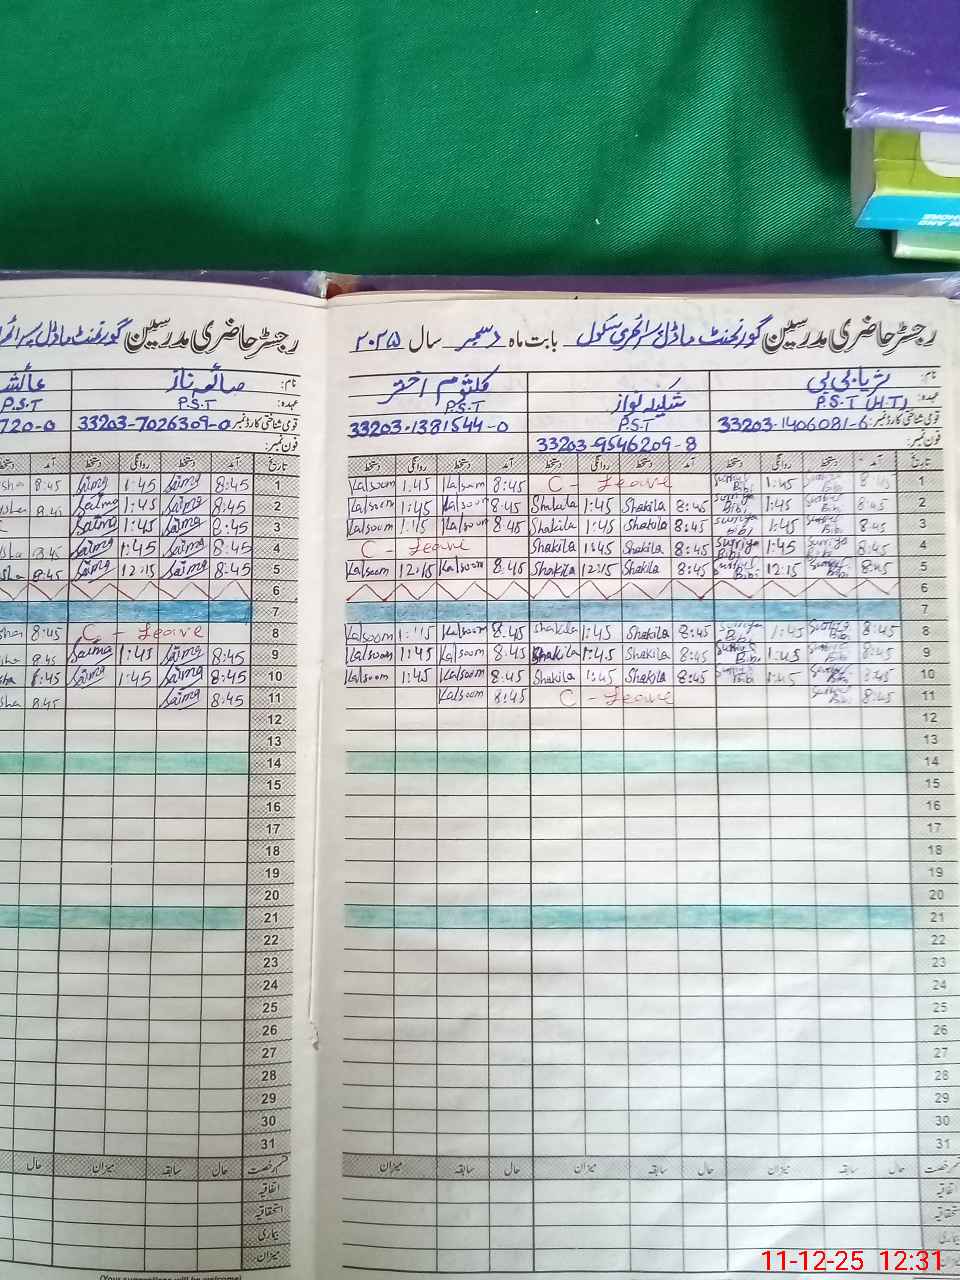 رجسٹر حاضری مدرسین گورنمنٹ ماڈل پرائمری سکول بابت ماہ دسمبر سال ۲۰۲۵
نام: ثریا بی بی شکیلہ نواز کلثوم اختر
عہدہ: P.S.T (H.T) P.S.T P.S.T
قومی شناختی کارڈ نمبر: 33203-1406081-6 33203-9546209-8 33203-1381544-0
فون نمبر:
تاریخ آمد دستخط روانگی دستخط آمد دستخط روانگی دستخط آمد دستخط روانگی دستخط
1 8:45 Surriya Bibi 1:45 Surriya Bibi C - Leave 8:45 Kalsoom 1:45 Kalsoom
2 8:45 Surriya Bibi 1:45 Surriya Bibi 8:45 Shakila 1:45 Shakila 8:45 Kalsoom 1:45 Kalsoom
3 8:45 Surriya Bibi 1:45 Surriya Bibi 8:45 Shakila 1:45 Shakila 8:45 Kalsoom 1:45 Kalsoom
4 8:45 Surriya Bibi 1:45 Surriya Bibi 8:45 Shakila 1:45 Shakila C - Leave
5 8:45 Surriya Bibi 12:15 Surriya Bibi 8:45 Shakila 12:15 Shakila 8:45 Kalsoom 12:15 Kalsoom
6
7
8 8:45 Surriya Bibi 1:45 Surriya Bibi 8:45 Shakila 1:45 Shakila 8:45 Kalsoom 1:45 Kalsoom
9 8:45 Surriya Bibi 1:45 Surriya Bibi 8:45 Shakila 1:45 Shakila 8:45 Kalsoom 1:45 Kalsoom
10 8:45 Surriya Bibi 1:45 Surriya Bibi 8:45 Shakila 1:45 Shakila 8:45 Kalsoom 1:45 Kalsoom
11 8:45 Surriya Bibi C - Leave 8:45 Kalsoom
12
13
14
15
16
17
18
19
20
21
22
23
24
25
26
27
28
29
30
31
قسم رخصت حال سابقہ میزان حال سابقہ میزان حال سابقہ میزان
اتفاقیہ
استحقاقیہ
بیماری
میزان
رجسٹر حاضری مدرسین گورنمنٹ ماڈل
نام: صائمہ ناز
عہدہ: P.S.T P.S.T
قومی شناختی کارڈ نمبر: 33203-7026309-0 720-0
فون نمبر:
تاریخ آمد دستخط روانگی دستخط آمد دستخط
1 8:45 Saima 1:45 Saima 8:45
2 8:45 Saima 1:45 Saima 8:45
3 8:45 Saima 1:45 Saima
4 8:45 Saima 1:45 Saima 8:45
5 8:45 Saima 12:15 Saima 8:45
6
7
8 C - Leave 8:45
9 8:45 Saima 1:45 Saima 8:45
10 8:45 Saima 1:45 Saima 8:45
11 8:45 Saima 8:45
12
13
14
15
16
17
18
19
20
21
22
23
24
25
26
27
28
29
30
31
قسم رخصت حال سابقہ میزان حال
اتفاقیہ
استحقاقیہ
بیماری
میزان
(Your suggestions will be welcome)
11-12-25 12:31